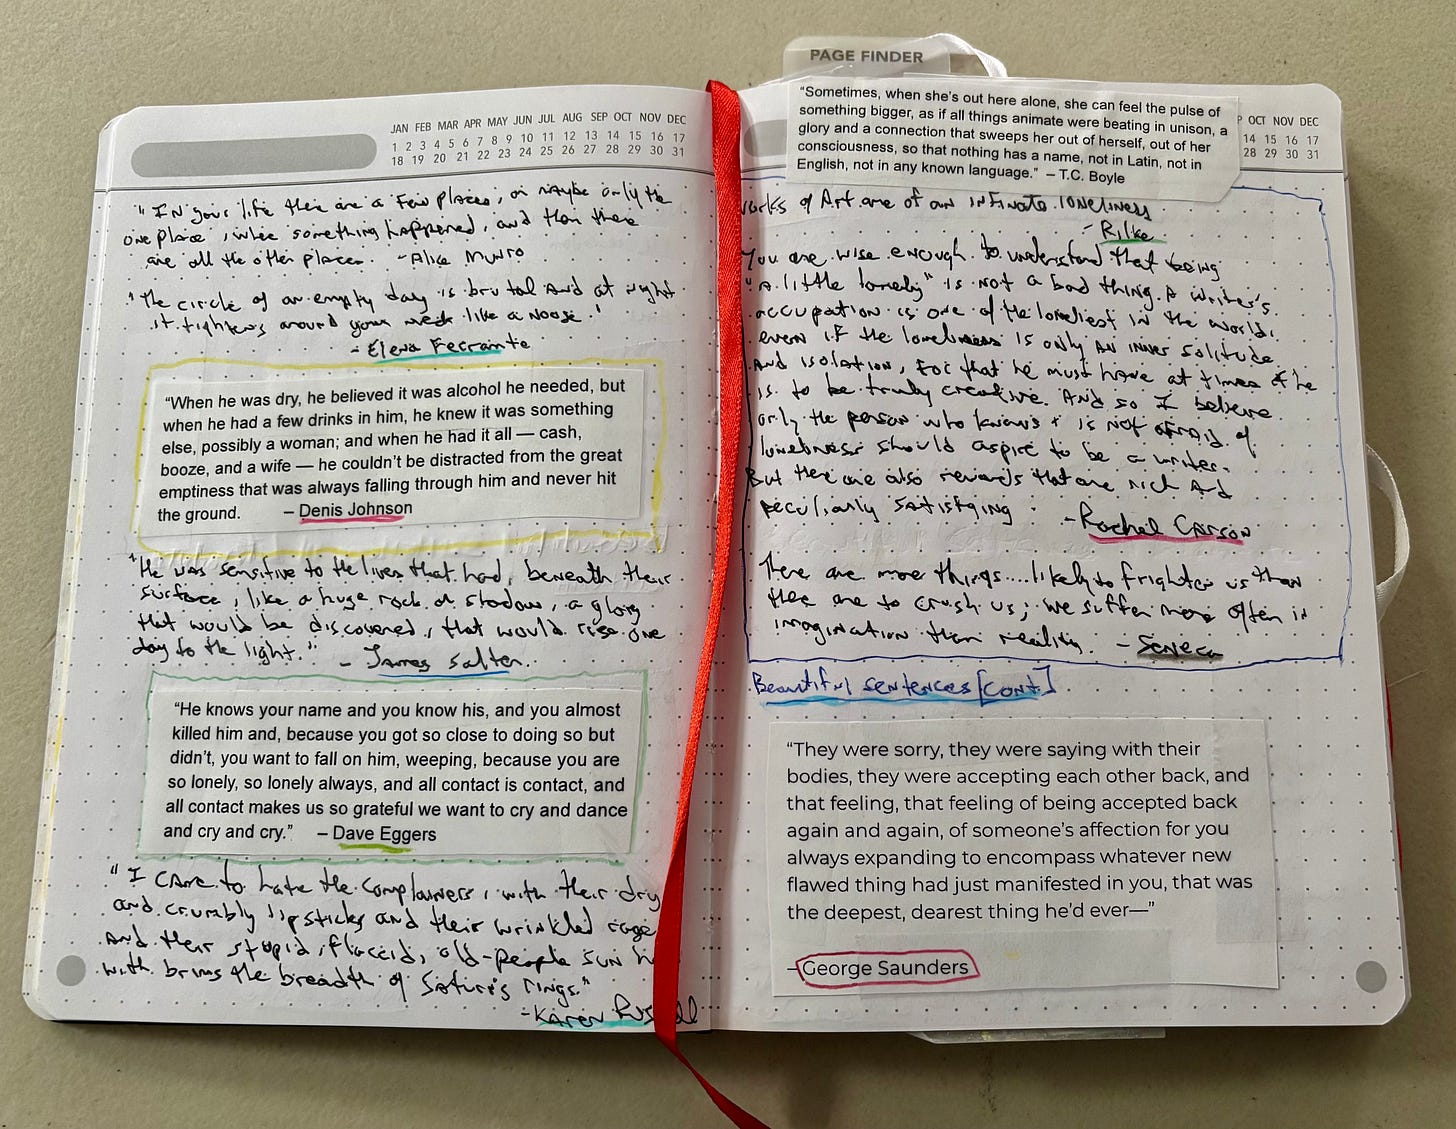 JAN FEB MAR APR MAY JUN JUL AUG SEP OCT NOV DEC
1 2 3 4 5 6 7 8 9 10 11 12 13 14 15 16 17
18 19 20 21 22 23 24 25 26 27 28 29 30 31
"In your life there are a few places, or maybe only the
one place, where something happened, and then there
are all the other places. - Alice Munro
"The circle of an empty day is brutal and at night
it tightens around your neck like a noose."
- Elena Ferrante
“When he was dry, he believed it was alcohol he needed, but
when he had a few drinks in him, he knew it was something
else, possibly a woman; and when he had it all — cash,
booze, and a wife — he couldn’t be distracted from the great
emptiness that was always falling through him and never hit
the ground. – Denis Johnson
"He was sensitive to the lives that had, beneath their
surface, like a huge rock or shadow, a glory
that would be discovered, that would rise one
day to the light." - James Salter
“He knows your name and you know his, and you almost
killed him and, because you got so close to doing so but
didn’t, you want to fall on him, weeping, because you are
so lonely, so lonely always, and all contact is contact, and
all contact makes us so grateful we want to cry and dance
and cry and cry.” – Dave Eggers
"I came to hate the complainers, with their dry
and crumbly lipsticks and their wrinkled rage
and their stupid, flaccid, old-people sun
with brims the breadth of Saturn's rings."
- Karen
PAGE FINDER
“Sometimes, when she’s out here alone, she can feel the pulse of
something bigger, as if all things animate were beating in unison, a
glory and a connection that sweeps her out of herself, out of her
consciousness, so that nothing has a name, not in Latin, not in
English, not in any known language.” – T.C. Boyle
P OCT NOV DEC
14 15 16 17
28 29 30 31
works of Art are of an infinate loneliness
- Rilke
You are wise enough to understand that being
"a little lonely" is not a bad thing. A writer's
occupation is one of the loneliest in the world,
even if the loneliness is only an inner solitude
and isolation, for that he must have at times if he
is to be truly creative. And so I believe
only the person who knows + is not afraid of
loneliness should aspire to be a writer.
But there are also rewards that are rich and
peculiarly satisfying. - Rachel Carson
There are more things....likely to frighten us than
there are to crush us; we suffer more often in
imagination than reality. - Seneca
Beautiful sentences [cont.]
“They were sorry, they were saying with their
bodies, they were accepting each other back, and
that feeling, that feeling of being accepted back
again and again, of someone’s affection for you
always expanding to encompass whatever new
flawed thing had just manifested in you, that was
the deepest, dearest thing he’d ever—”
–George Saunders